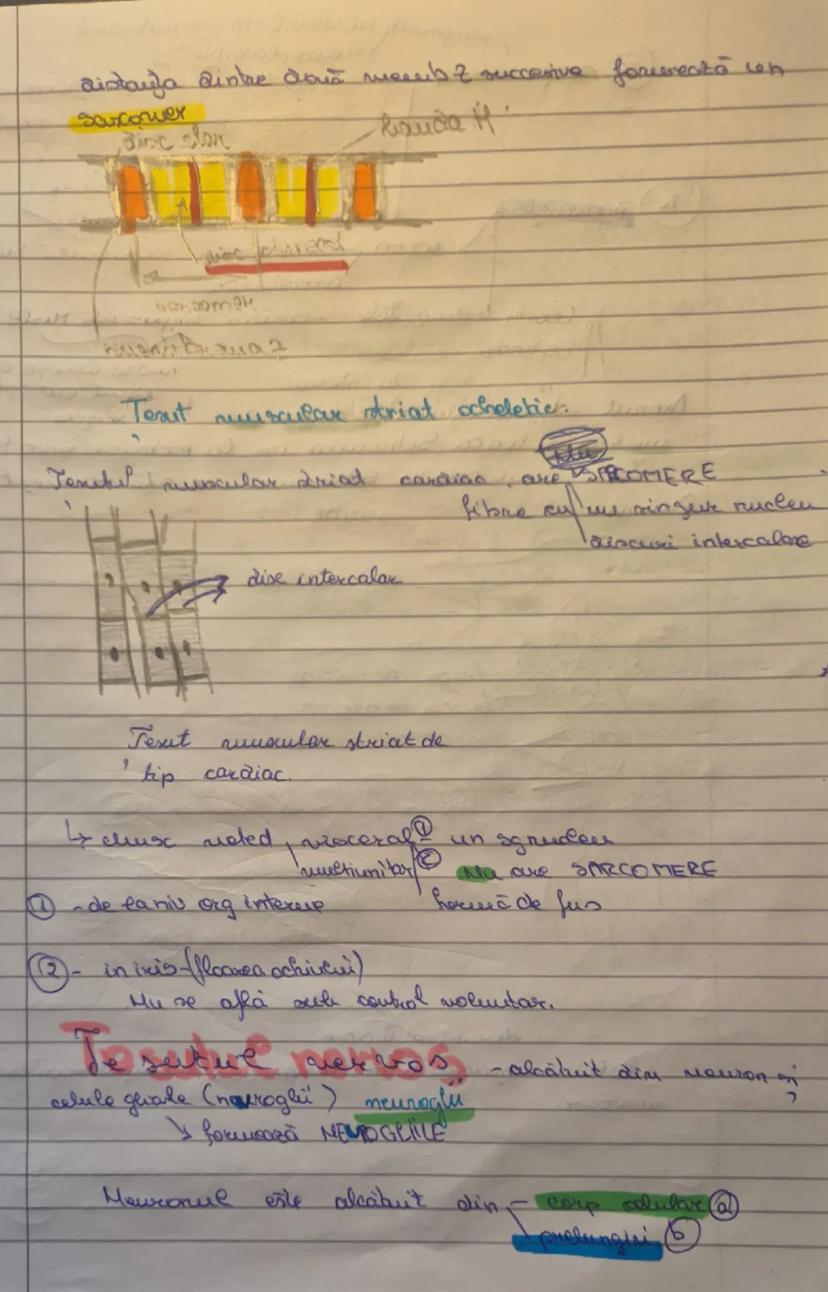 distanța dintre două memb Z succesive formează un
sarcomer
disc clar
banda H
disc
sarcomer
membrana Z
Țesut muscular striat scheletic.
Țesutul muscular striat cardiac are SARCOMERE
fibre cu un singur nucleu
discuri intercalare
disc intercalar
Țesut muscular striat de
tip cardiac.
↳ musc neted, visceral ① un sg nucleu
multiunitar ② Nu are SARCOMERE
formă de fus
① - de la niv org interne
② - in iris (floarea ochiului)
Nu se află sub control voluntar.
Țesutul nervos - alcătuit din neuron și
celule gliale (nevroglii) nevroglii
↘ formează NEVROGLIILE
Neuronul este alcătuit din - corp celular ⓐ
prelungiri ⓑ